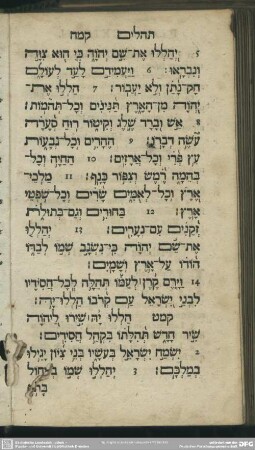 תהלים קמח
5 יְהַלְלוּ אֶת־שֵׁם יְהוָה כִּי הוּא צִוָּה
וְנִבְרָאוּ׃ 6 וַיַּעֲמִידֵם לָעַד לְעוֹלָם
חָק־נָתַן וְלֹא יַעֲבוֹר׃ 7 הַלְלוּ אֶת־
יְהוָה מִן־הָאָרֶץ תַּנִּינִים וְכָל־תְּהֹמוֹת׃
8 אֵשׁ וּבָרָד שֶׁלֶג וְקִיטוֹר רוּחַ סְעָרָה
עֹשָׂה דְבָרוֹ׃ 9 הֶהָרִים וְכָל־גְּבָעוֹת
עֵץ פְּרִי וְכָל־אֲרָזִים׃ 10 הַחַיָּה וְכָל־
בְּהֵמָה רֶמֶשׂ וְצִפּוֹר כָּנָף׃ 11 מַלְכֵי־
אֶרֶץ וְכָל־לְאֻמִּים שָׂרִים וְכָל־שֹׁפְטֵי
אָרֶץ׃ 12 בַּחוּרִים וְגַם־בְּתוּלוֹת
זְקֵנִים עִם־נְעָרִים׃ 13 יְהַלְלוּ
אֶת־שֵׁם יְהוָה כִּי־נִשְׂגָּב שְׁמוֹ לְבַדּוֹ
הוֹדוֹ עַל־אֶרֶץ וְשָׁמָיִם׃
14 וַיָּרֶם קֶרֶן לְעַמּוֹ תְּהִלָּה לְכָל־חֲסִידָיו
לִבְנֵי יִשְׂרָאֵל עַם קְרֹבוֹ הַלְלוּ־יָהּ׃
קמט הַלְלוּ יָהּ שִׁירוּ לַיהוָה
שִׁיר חָדָשׁ תְּהִלָּתוֹ בִּקְהַל חֲסִידִים׃
2 יִשְׂמַח יִשְׂרָאֵל בְּעֹשָׂיו בְּנֵי צִיּוֹן יָגִילוּ
בְמַלְכָּם׃ 3 יְהַלְלוּ שְׁמוֹ בְמָחוֹל
DFG